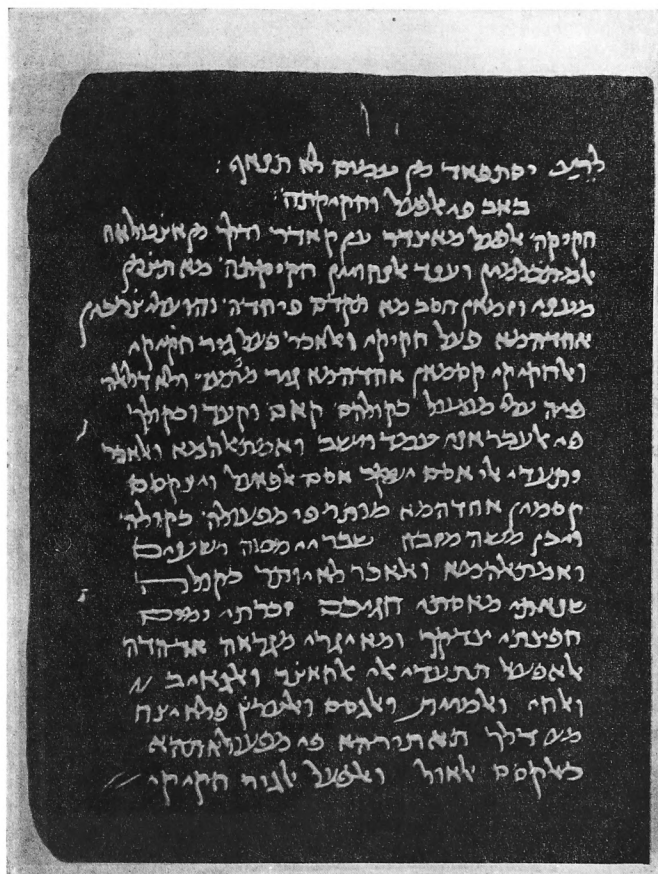 לריב יסתפאד מן עמום לא תנאף :
באב פי אלפעל וחקיקתה :
חקיקה אלפעל מא ינדר ען קאדר
אלמתכלמין וענד אלנחויין חקיקתה מא
מעני וזמאן חסב מא תקדם פי חדה והו עלי צרבין
אחדהמא פעל חקיקי ואלאכר פעל גיר חקיקי
ואלחקיקי קסמאן אחדהמא גיר מתעדי ולא דלאלה
פיה עלי מפעול כקולהם קאם וקעד וכקולך
פי אלעבראני עמד וישב ואמתאלהמא ואלאכר
יתעדי אלי אסם גיר אסם אלפאעל וינקסם
קסמין אחדהמא מותר פי מפעולה כקולה
ויבן משה מזבח שברתי מטה רשעים
ואמתאלהמא ואלאכר לא יותר כקולה
שנאתי מאסתי חגיכם
חפצתי צדקך ומא יגרי מגראה אד הדה
אלאפעאל תתעדי אלי אלחאצר ואלגאיב
ואלחי ואלמיית ואלגסם ואלערץ פלא יצח
מע דלך תאתירהא פי מפעולאתהא
כאלקסם אלאול ואלפעל אלגיר חקיקי